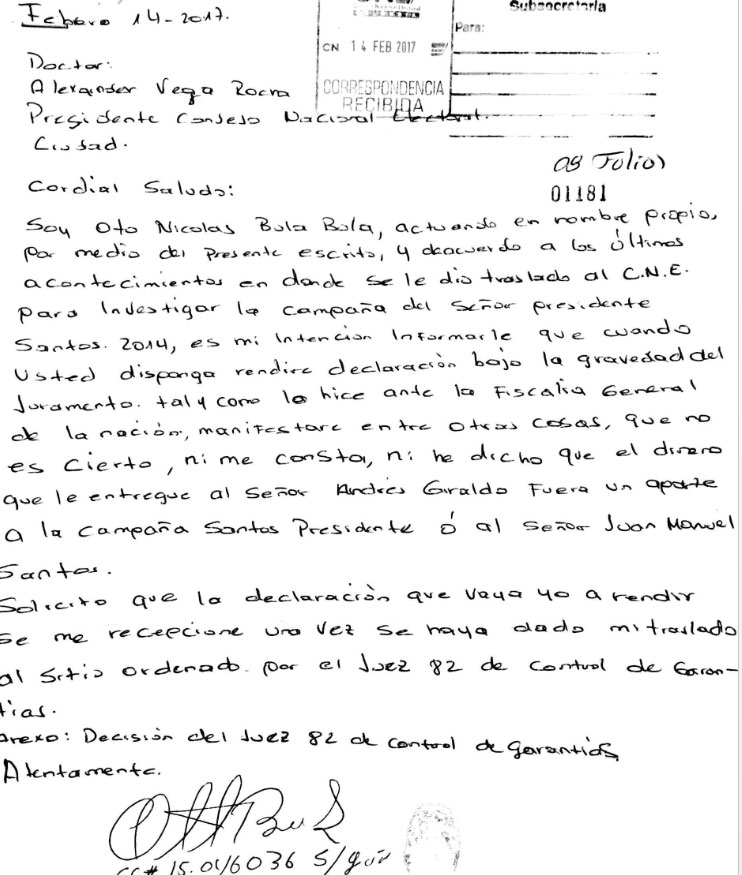 Febrero 14-2017.
Subsecretaría
Para:
CN 14 FEB 2017
CORRESPONDENCIA
RECIBIDA
Doctor:
Alexander Vega Rocha
Presidente Consejo Nacional Electoral.
Ciudad.
08 Folios
01181
Cordial Saludo:
Soy Otto Nicolas Bula Bula, actuando en nombre propio,
por medio del presente escrito, y deacuerdo a los últimos
acontecimientos en donde se le dio traslado al C.N.E.
para Investigar la campaña del Señor presidente
Santos. 2014, es mi Intención Informarle que cuando
Usted disponga rendire declaración bajo la gravedad del
Juramento. tal y como lo hice ante la Fiscalia General
de la nación, manifestare entre otras cosas, que no
es cierto, ni me consta, ni he dicho que el dinero
que le entregue al Señor Andrés Giraldo Fuera un aporte
a la campaña Santos Presidente ó al Señor Juan Manuel
Santos.
Solicito que la declaración que vaya yo a rendir
se me recepcione una vez se haya dado mi traslado
al Sitio ordenado. por el Juez 82 de Control de Garan-
tias.
Anexo: Decisión del Juez 82 de control de garantias
Atentamente.
CC# 15.046036 S/gún